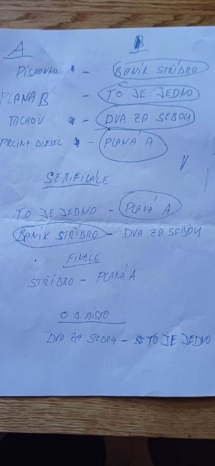 A B
PÍSKOVNA - BANÍK STŘÍBRO
PLANÁ B - TO JE JEDNO
TACHOV - DVA ZA SEBOU
DIESEL - PLANÁ A
SEMIFINÁLE
TO JE JEDNO - PLANÁ A
BANÍK STŘÍBRO - DVA ZA SEBOU
FINÁLE
STŘÍBRO - PLANÁ A
O 3 MÍSTO
DVA ZA SEBOU - TO JE JEDNO